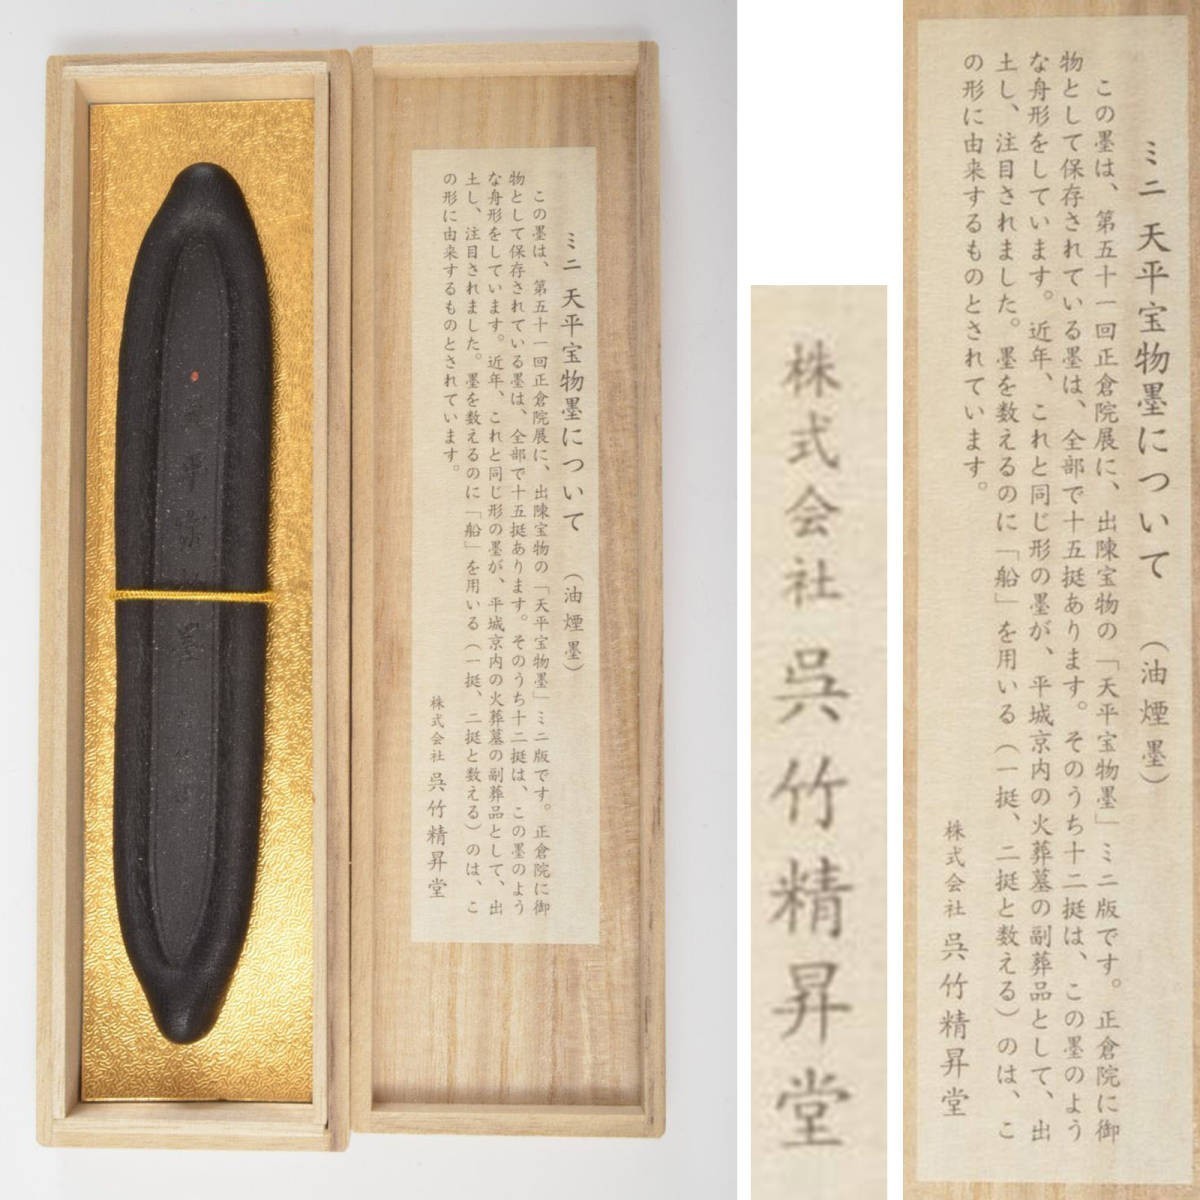 天平宝物墨
ミニ 天平宝物墨について （油煙墨）
この墨は、第五十一回正倉院展に、出陳宝物の「天平宝物墨」ミニ版です。正倉院に御
物として保存されている墨は、全部で十五挺あります。そのうち十二挺は、この墨のよう
な舟形をしています。近年、これと同じ形の墨が、平城京内の火葬墓の副葬品として、出
土し、注目されました。墨を数えるのに「船」を用いる（一挺、二挺と数える）のは、こ
の形に由来するものとされています。
株式会社 呉竹精昇堂
株式会社 呉竹精昇堂
ミニ 天平宝物墨について （油煙墨）
この墨は、第五十一回正倉院展に、出陳宝物の「天平宝物墨」ミニ版です。正倉院に御
物として保存されている墨は、全部で十五挺あります。そのうち十二挺は、この墨のよう
な舟形をしています。近年、これと同じ形の墨が、平城京内の火葬墓の副葬品として、出
土し、注目されました。墨を数えるのに「船」を用いる（一挺、二挺と数える）のは、こ
の形に由来するものとされています。
株式会社 呉竹精昇堂